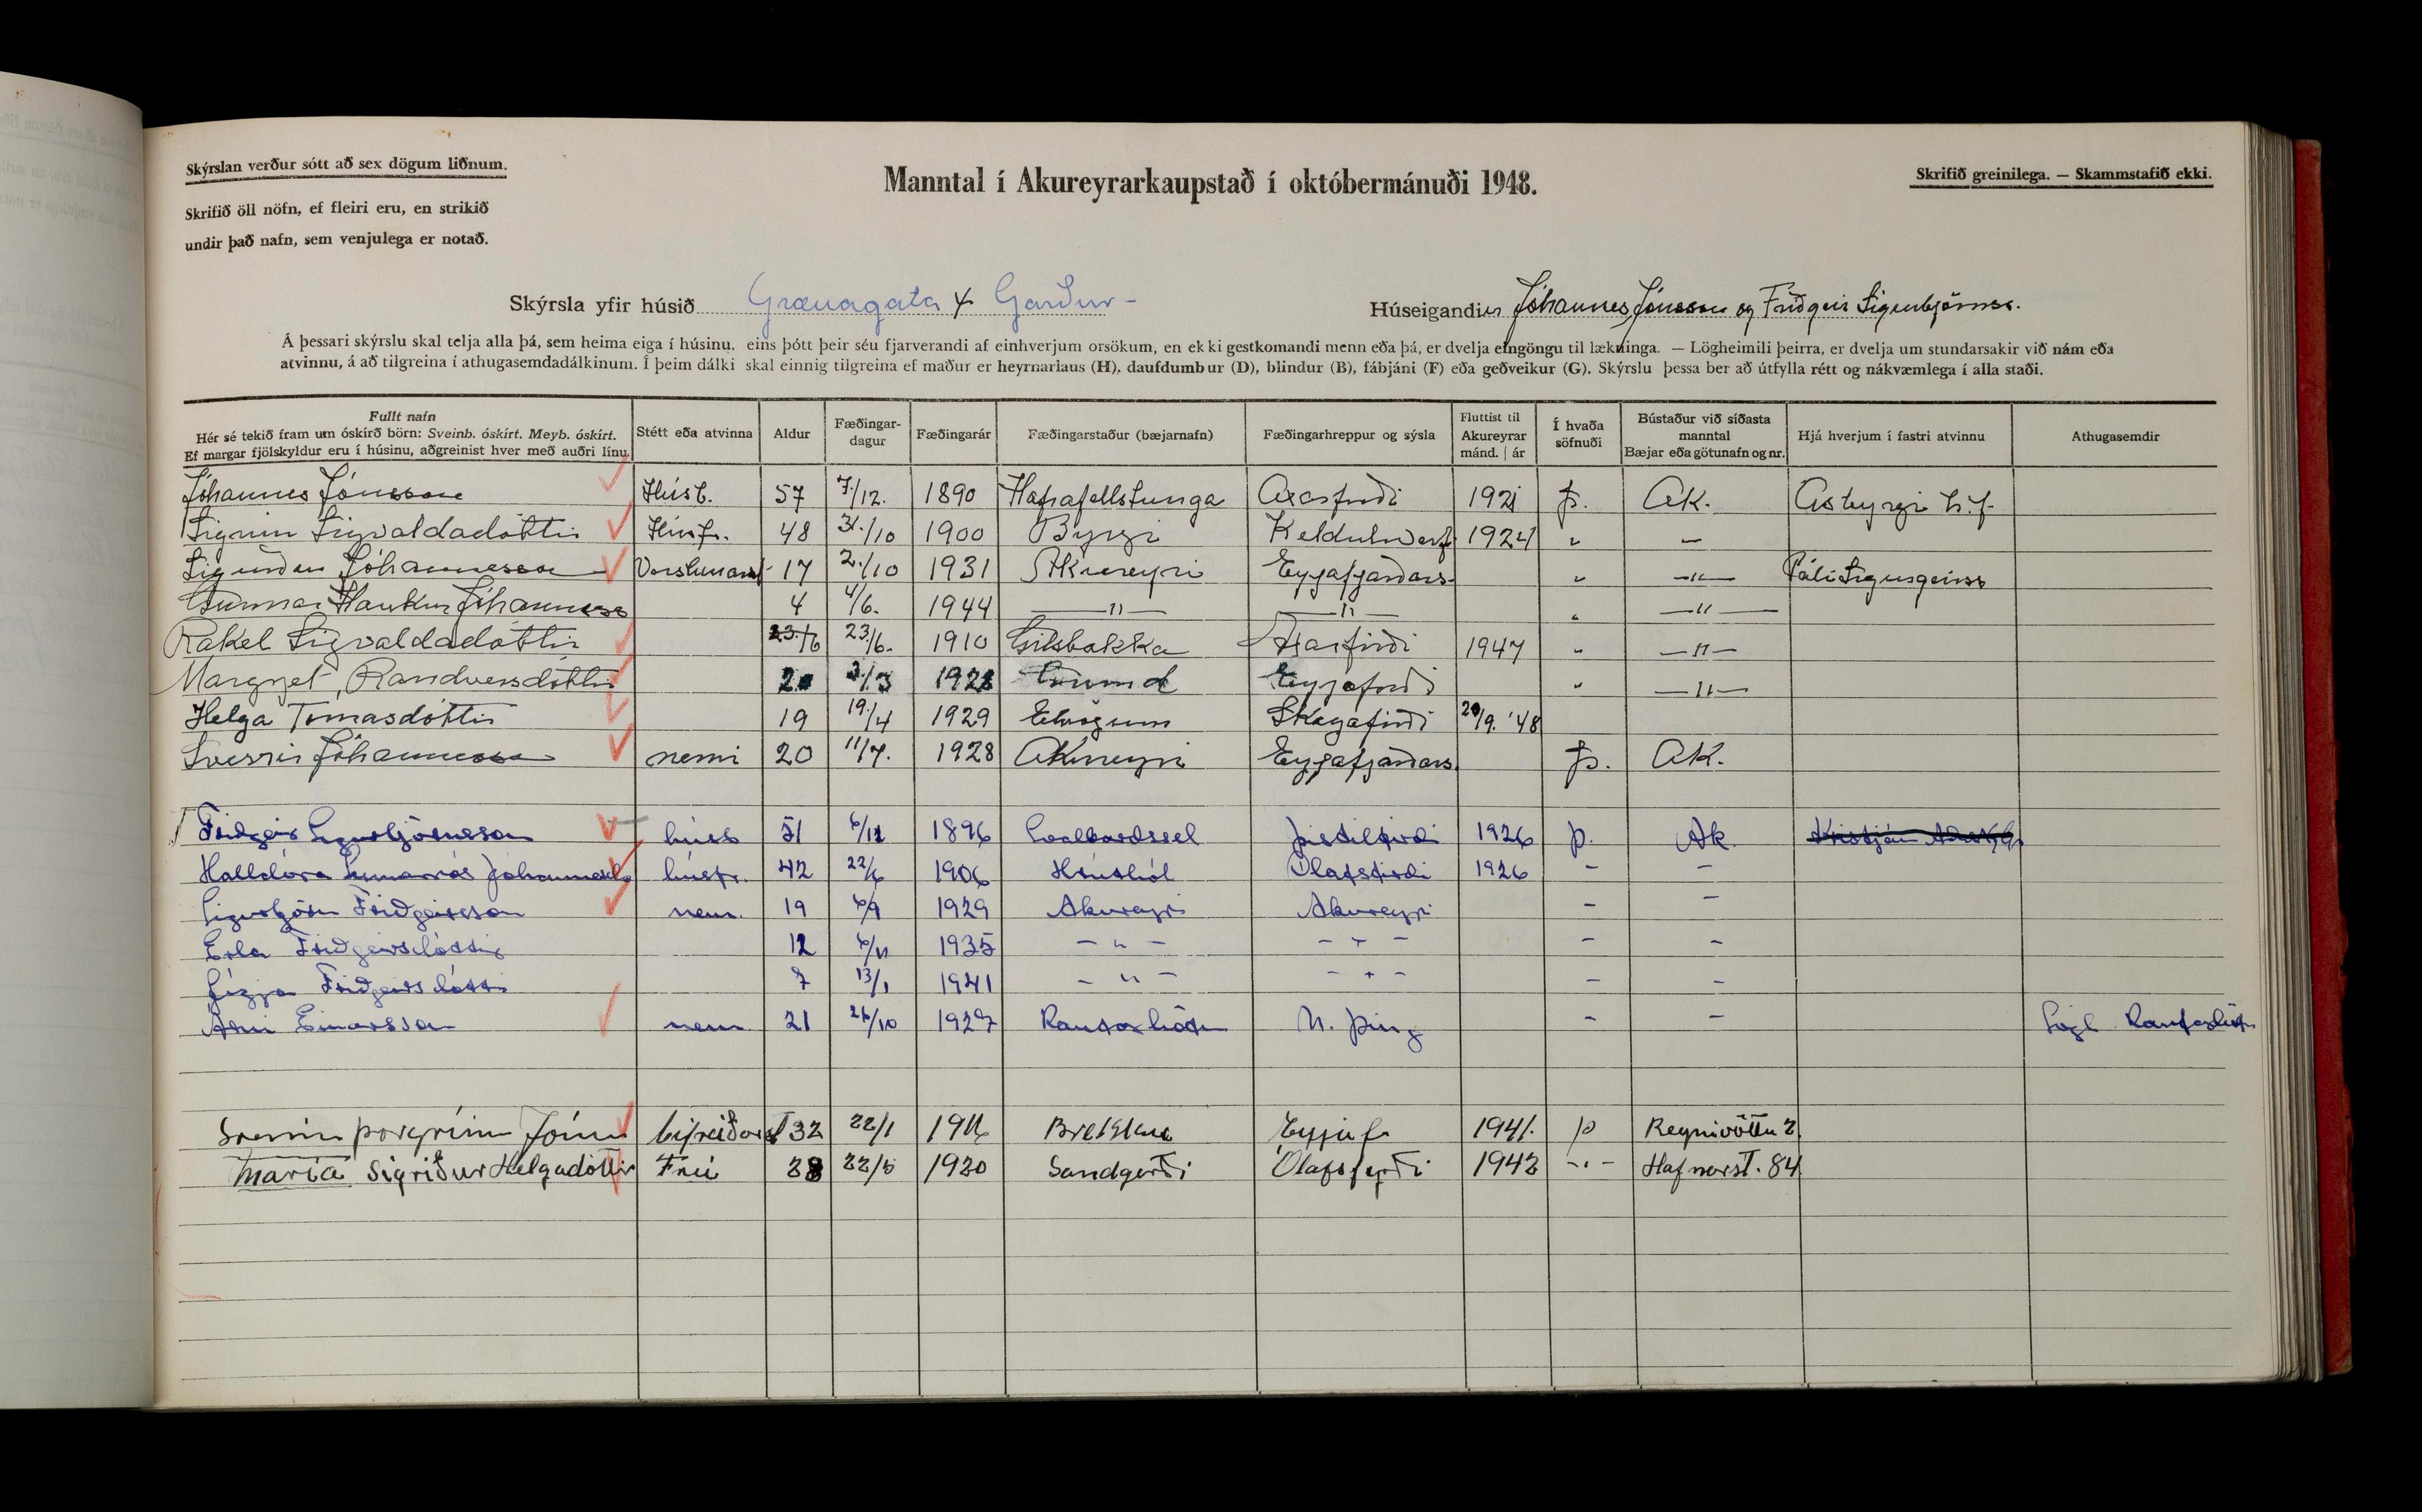 Skýrslan verður sótt að sex dögum liðnum.
Manntal í Akureyrarkaupstað í októbermánuði 1948.
Skrifið greinilega. — Skammstafið ekki.
Skrifið öll nöfn, ef fleiri eru, en strikið
undir það nafn, sem venjulega er notað.
Skýrsla yfir húsið Grænagata 4 Garður –
Húseigandi Jóhannes Jónsson og Friðgeir Sigurbjörnss.
Á þessari skýrslu skal telja alla þá, sem heima eiga í húsinu, eins þótt þeir séu fjarverandi af einhverjum orsökum, en ekki gestkomandi menn eða þá, er dvelja eingöngu til lækninga. — Lögheimili þeirra, er dvelja um stundarsakir við nám eða
atvinnu, á að tilgreina í athugasemdadálkinum. Í þeim dálki skal einnig tilgreina ef maður er heyrnarlaus (H), daufdumbur (D), blindur (B), fábjáni (F) eða geðveikur (G). Skýrslu þessa ber að útfylla rétt og nákvæmlega í alla staði.
Fullt nafn
Hér sé tekið fram um óskírð börn: Sveinb. óskírt. Meyb. óskírt.
Ef margar fjölskyldur eru í húsinu, aðgreinist hver með auðri línu.
Stétt eða atvinna
Aldur
Fæðingar-
dagur
Fæðingarár
Fæðingarstaður (bæjarnafn)
Fæðingarhreppur og sýsla
Fluttist til
Akureyrar
mánd. | ár
Í hvaða
söfnuði
Bústaður við síðasta
manntal
Bæjar eða götunafn og nr.
Hjá hverjum í fastri atvinnu
Athugasemdir
Jóhannes Jónsson Húsb. 57 7./12. 1890 Hafrafellstunga Axarfirði 1921 Þ. AK. Asbyrgi h.f.
Sigrún Sigvaldadóttir Húsfr. 48 31./10 1900 Byrgi Kelduhverfi 1924 " –
Sigurður Jóhannesson 17 2./10 1931 Akureyri Eyjafjarðars. " –"– Páli Sigurgeirss
Gunnar Haukur Jóhanness 4 4/6. 1944 –"– –"– " –"–
Rakel Sigvaldadóttir 23./6 23./6. 1910 Gilsbakka Axarfirði 1947 " –"–
Margrjet Randversdóttir 3/3 Grund Eyjafirði " –"–
Helga Tómasdóttir 19 19./4 1929 Skagafirði /9. '48
Sverrir Jóhannesson nemi 20 11/7. 1928 Akureyri Eyjafjarðars. Þ. AK.
Friðgeir Sigurbjörnsson húsb 51 1896 Svalbarðssel Þistilfirði 1926 Þ. Ak.
Halldóra Jóhannesd húsfr. 42 22/6 1906 Hrúthól Ólafsfirði 1926 – –
Sigurbjörn Friðgeirsson nem. 19 6/9 1929 Akureyri Akureyri – –
Erla Friðgeirsdóttir 12 6/11 1935 – " – – " – – –
Friðgeirsdóttir 7 13/1 1941 – " – – " – – –
Árni Einarsson nem 21 26/10 1927 Raufarhöfn N. Þing – – Lögh Raufarhöfn
Þorgrímur Jónsson bifreiðarst 32 22/1 1916 Brekku Eyjaf. 1941. Þ Reynivöllu 2.
María Sigríður Helgadóttir Frú 28 22/5 1920 Sandgerði Ólafsfirði 1942 –"– Hafnarst. 84